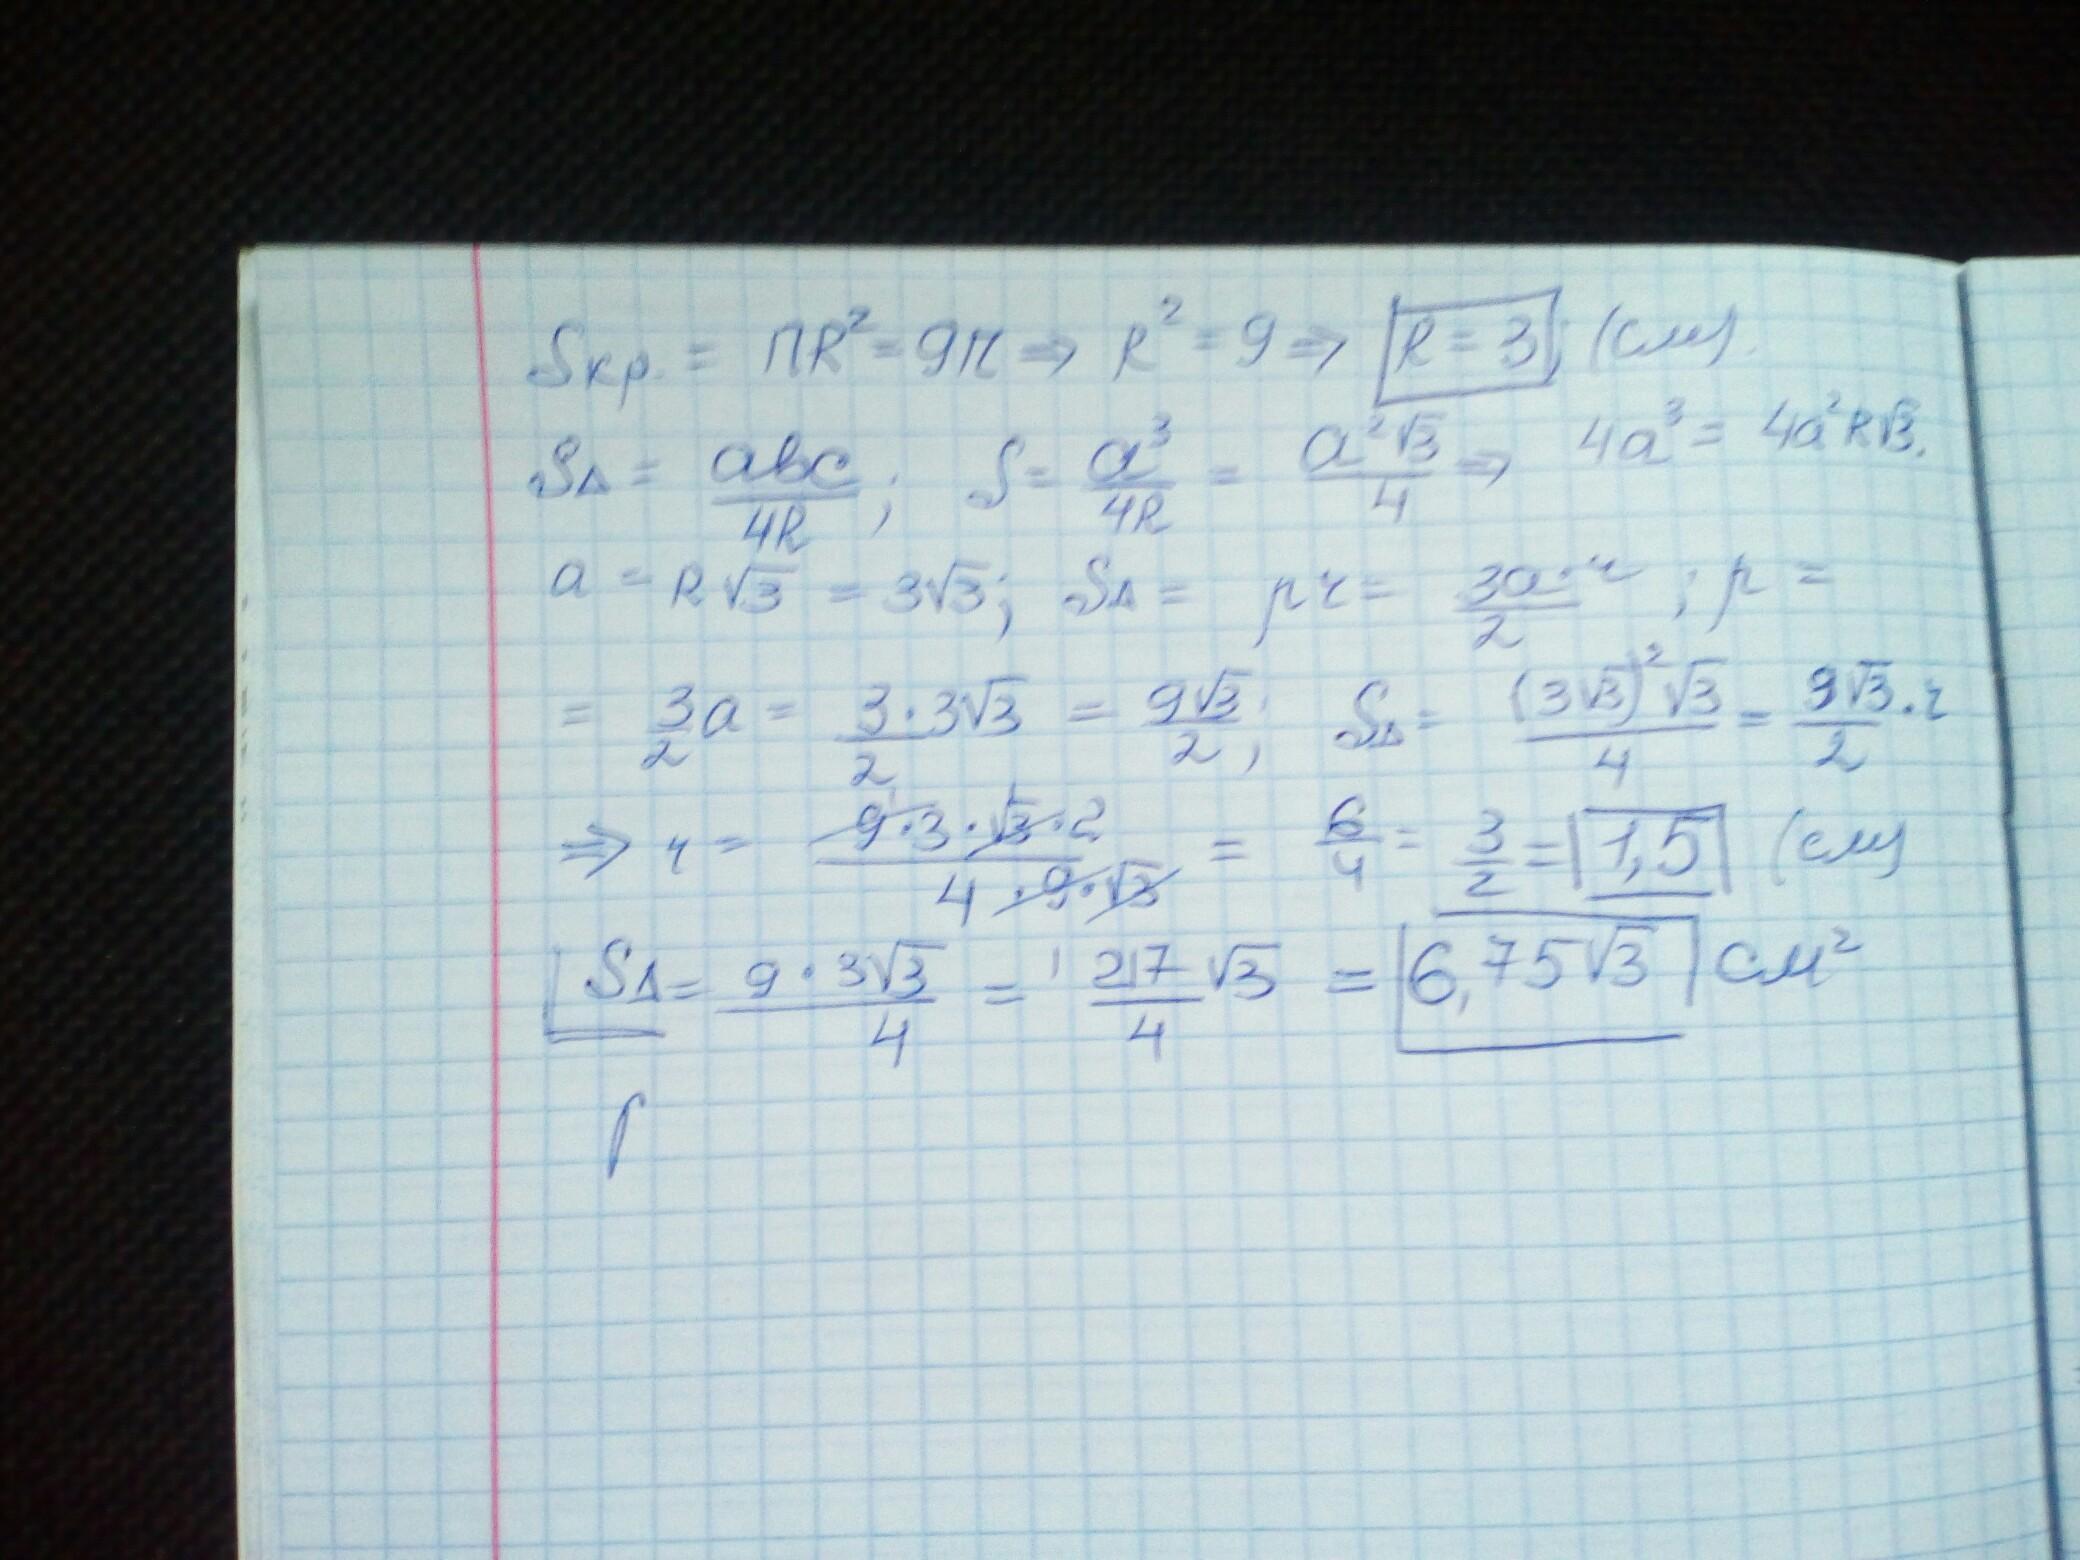 Sкр. = ПR² = 9П ⇒ R² = 9 ⇒ R = 3; (см).
S△ = abc/4R; S = a³/4R = a²√3/4 ⇒ 4a³ = 4a²R√3.
a = R√3 = 3√3; S△ = pr = 3a·r/2; p =
= 3/2 a = 3·3√3/2 = 9√3/2; S△ = (3√3)²√3/4 = 9√3/2 · r
⇒ r = 9·3·√3·2/4·9·√3 = 6/4 = 3/2 = 1,5 (см)
S△ = 9·3√3/4 = 27/4 √3 = 6,75√3 см²